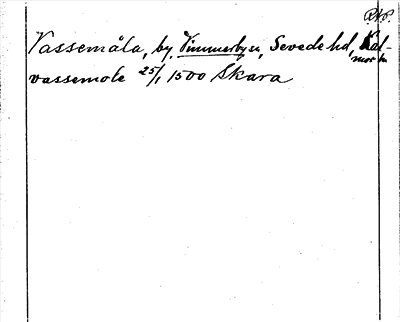 R.N.P.
Vassemåla, by, Vimmerby sn, Sevede hd, Kal-
mar ln
vassemole 25/1 1500 Skara